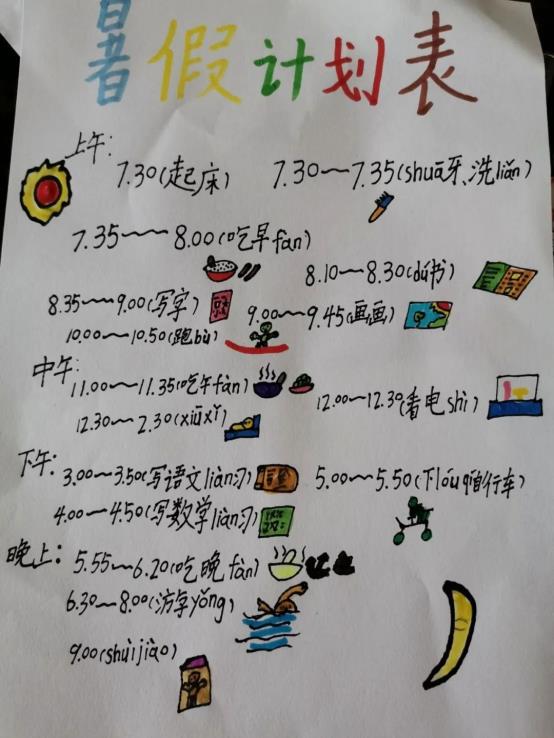 暑假计划表
上午:
7.30(起床) 7.30~7.35(shuā牙、洗liǎn)
7.35~8.00(吃早fan)
8.10~8.30(dú书)
8.35~9.00(写字) 9.00~9.45(画画)
10.00~10.50(跑bù)
中午:
11.00~11.35(吃午fàn) 12.00~12.30(看电shì)
12.30~2.30(xiūxī)
下午:
3.00~3.50(写语文liàn习) 5.00~5.50(下lóu 行车)
4.00~4.50(写数学liàn习)
晚上:
5.55~6.20(吃晚fàn)
6.30~8.00(游字yǒng)
9.00(shùijiào)